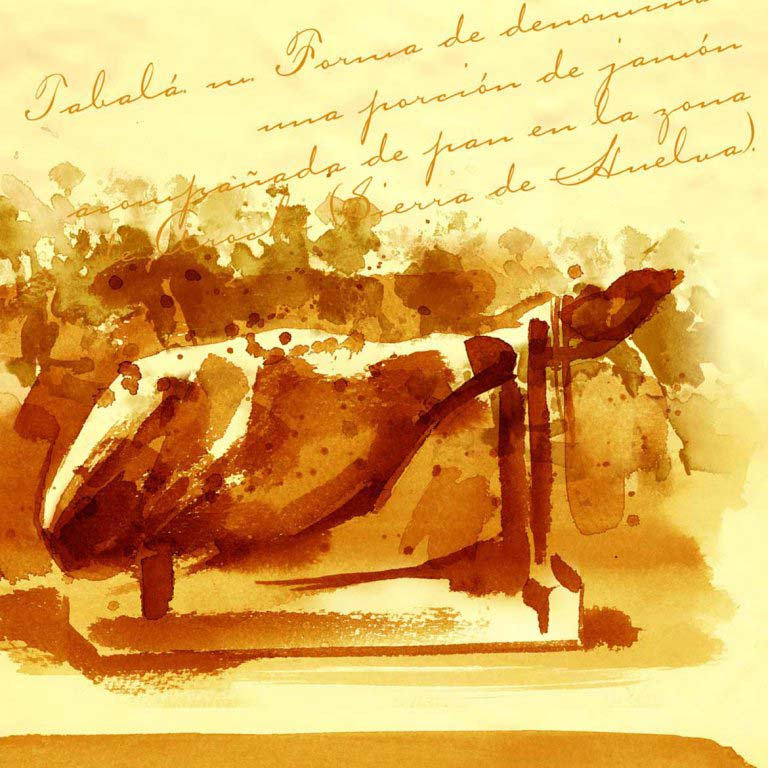 Tabalá. m. Forma de denominar
una porción de jamón
acompañada de pan en la zona
(Sierra de Huelva).